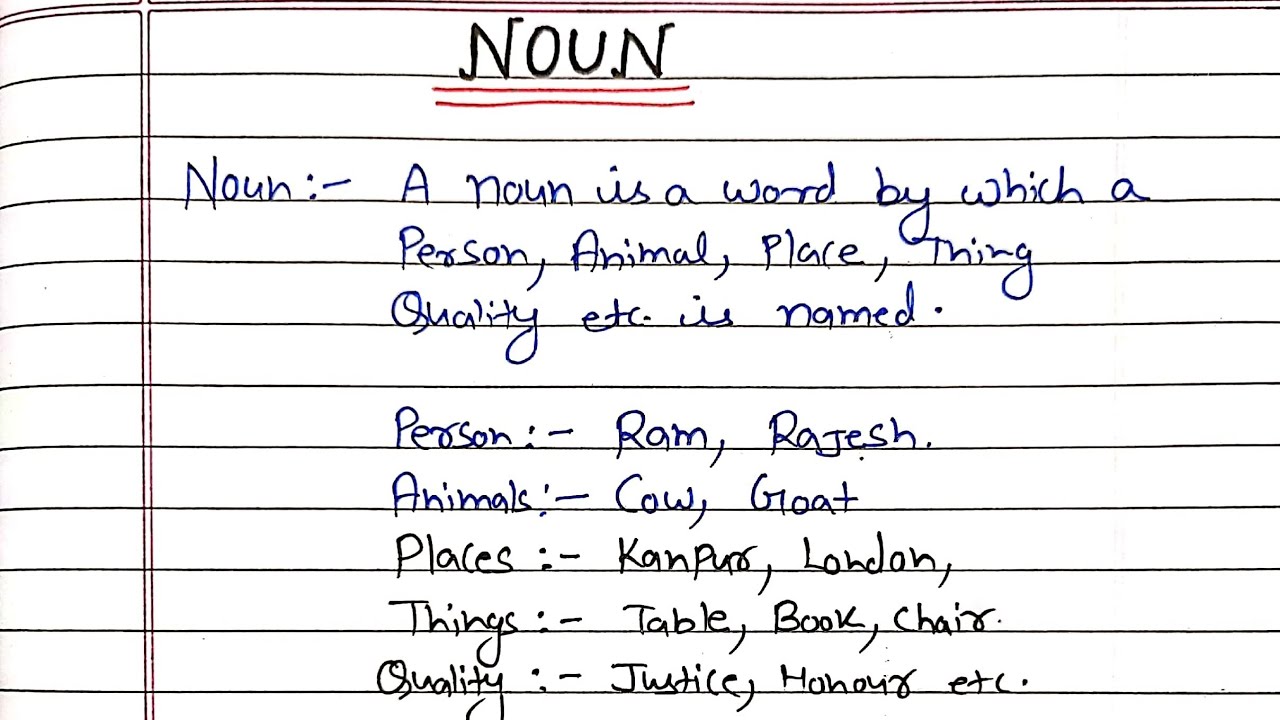 NOUN
Noun:- A noun is a word by which a
Person, Animal, Place, Thing
Quality etc. is named.
Person:- Ram, Rajesh.
Animals:- Cow, Goat
Places:- Kanpur, London,
Things:- Table, Book, Chair.
Quality:- Justice, Honour etc.